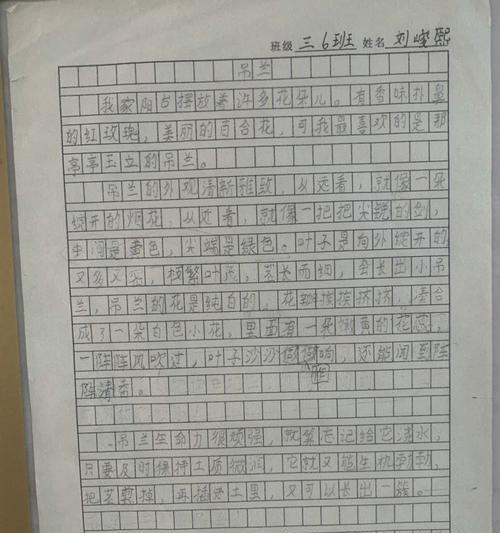 班级 三6班 姓名 刘峻熙
吊兰
我家阳台摆放着许多花朵儿。有香味扑鼻
的红玫瑰，美丽的百合花，可我最喜欢的是那
亭亭玉立的吊兰。
吊兰的外观清新雅致，从远看，就像一朵
绽开的烟花，从近看，就像一把把尖锐的剑，
中间是黄色，尖端是绿色。叶子是向外绽开的
又多又 ，枝繁叶茂，茎长而细，会长出小吊
兰，吊兰的花是纯白的，花瓣挨挨挤挤，合
成了一朵白色小花，里面有一朵嫩黄的花蕊，
一阵阵风吹过，叶子沙沙做响，还能闻到阵
阵清香。
吊兰生命力很顽强，就算忘记给它浇水，
只要及时保持土质微润，它就又能生机勃勃，
把茎剪掉，再插进土里，又可以长出一簇。